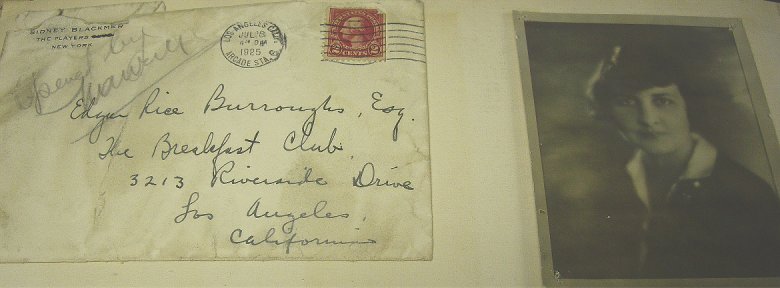 SIDNEY BLACKMER
THE PLAYERS
NEW YORK
opened by
LOS ANGELES, CALIF.
JUL 8
1925
ARCADE STA.
2 CENTS 2
Edgar Rice Burroughs, Esq.
The Breakfast Club,
3213 Riverside Drive
Los Angeles,
California